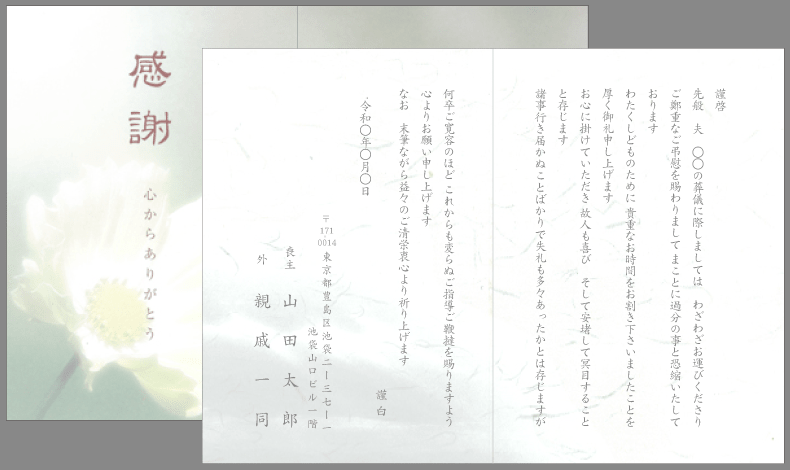 感謝
心からありがとう
謹啓
先般　夫　〇〇の葬儀に際しましては　わざわざお運びくださり
ご鄭重なご弔慰を賜わりまして まことに過分の事と恐縮いたして
おります
わたくしどものために 貴重なお時間をお割き下さいましたことを
厚く御礼申し上げます
お心に掛けていただき 故人も喜び　そして安堵して冥目すること
と存じます
諸事行き届かぬことばかりで失礼も多々あったかとは存じますが
何卒ご寛容のほど これからも変らぬご指導ご鞭撻を賜りますよう
心よりお願い申し上げます
なお　末筆ながら益々のご清栄衷心より祈り上げます
謹白
令和〇年〇月〇日
〒171 0014
東京都豊島区池袋二ー三七ー一
池袋山口ビル一階
喪主　山田太郎
外　親戚一同